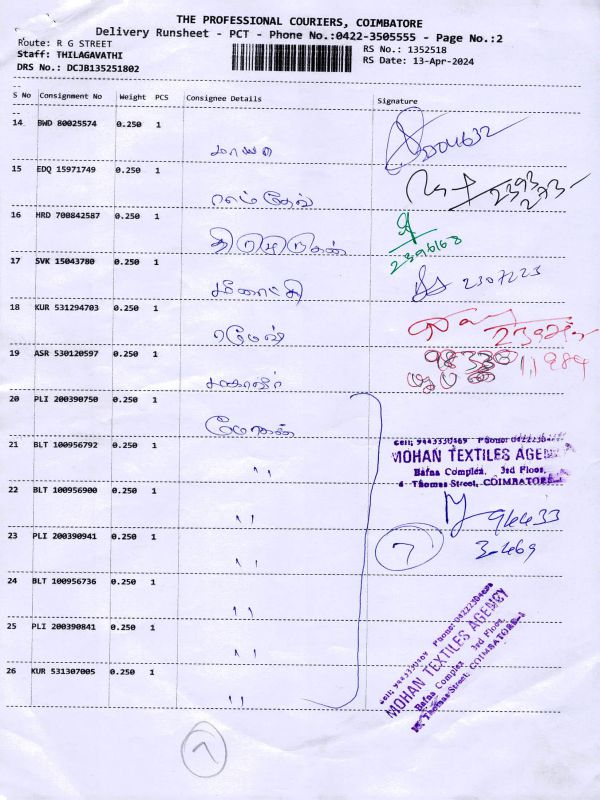 THE PROFESSIONAL COURIERS, COIMBATORE
Delivery Runsheet - PCT - Phone No.:0422-3505555 - Page No.:2
Route: R G STREET
RS No.: 1352518
Staff: THILAGAVATHI
RS Date: 13-Apr-2024
DRS No.: DCJB135251802
S No Consignment No Weight PCS Consignee Details Signature
14 BWD 80025574 0.250 1
15 EDQ 15971749 0.250 1
ராம்தேவ்
16 HRD 700842587 0.250 1
திருமுருகன்
2396168
17 SVK 15043780 0.250 1
மீனாட்சி 2307223
18 KUR 531294703 0.250 1
ரமேஷ்
19 ASR 530120597 0.250 1
மகாவீர்
20 PLI 200390750 0.250 1
மோகன்
21 BLT 100956792 0.250 1
"
Cell: 9443330469 Phone: 04222304
MOHAN TEXTILES AGENCY
Bafna Complex, 3rd Floor,
Thomas Street, COIMBATORE-1
22 BLT 100956900 0.250 1
"
94433
3469
7
23 PLI 200390941 0.250 1
"
24 BLT 100956736 0.250 1
"
25 PLI 200390841 0.250 1
"
26 KUR 531307005 0.250 1
"
Cell: 9443330469 Phone: 04222304
MOHAN TEXTILES AGENCY
Bafna Complex 3rd Floor,
Thomas Street, COIMBATORE-1
7